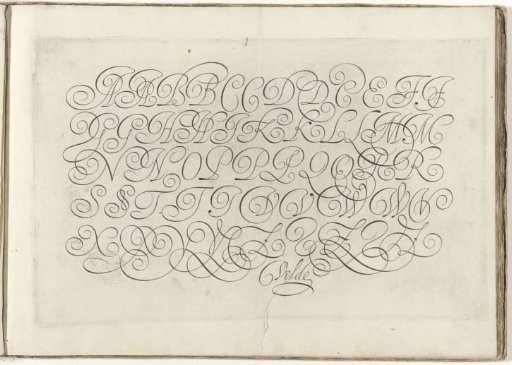 A A B B B C C D D E E F F
G G H H I K K L L M M
N N O P P P Q Q R R
S S T T T V V W W
X X Y Y Z Z Z Z
Velde